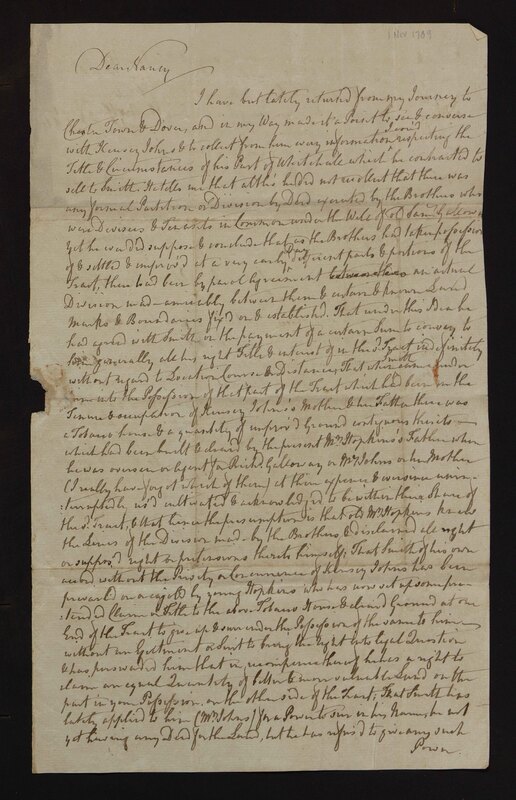 1 Nov 1789
Dear Nancy
I have but lately returned from my Journey to
Chester Town & Dover, and in my Way made it a Point to see & converse
with Kensey Johns & to collect from him every information I cou'd respecting the
Title & Circumstances of his Part of Whitehall which he contracted to
sell to Smith. He tells me that altho' he did not recollect that there was
any formal Partition or Division by Deed executed by the Brothers who
were Devisees & Tenants in Common under the Will of old Saml Galloway
yet he wou'd suppose & conclude that as the Brothers had taken possession
of & settled & improv'd at a very early Day different parts & portions of the
Tract, there had been by parol Agreement an actual
Division made amicably between them & certain & known Land
Marks & Boundaries fix'd on & established. That under this Idea he
had agreed with Smith on the payment of a certain Sum to convey to
him generally all his right Title & interest of in the sd Tract indefinitely
without regard to Location Course & Distance; That when Smith came
into the Possession of that part of the Tract which had been in the
Tenure & occupation of Kensey Johns's Mother & her Father there was
a Tobacco house & a quantity of improv'd Ground contiguous thereto
which had been built & cleared by the present Mr Hopkins's Father when
he was overseer or Agent for Richd Galloway or Mrs Johns or her Mother
(I really have forgot which of them) at their expence & ever since
us'd cultivated & acknowledg'd to be within their Share of
the sd Tract, & that hence the presumption is that old Mr Hopkins knew
the Lines of the Division made by the Brothers & disclaimed all right
or suppos'd right or pretensions thereto himself; That Smith of his own
accord without the Privity or Concurrence of Kensey Johns has been
prevail'd on or cajol'd by young Hopkins who has now set up some pre-
tended Claim & Title to the above Tobacco House & cleared Ground at one
End of the Tract to give up & surrender the Possession of the same to him
without an Ejectment or Suit to bring the right into legal Question
& has perswaded him that in recompence thereof he has a right to
claim an equal Quantity of better & more valuable Land on the
part in your Possession on the other side of the Tract; That Smith has
lately applied to him (Mr Johns) for a Power to Sue in his Name he not
yet having any Deed for the Land, but he has refus'd to give any such
Power